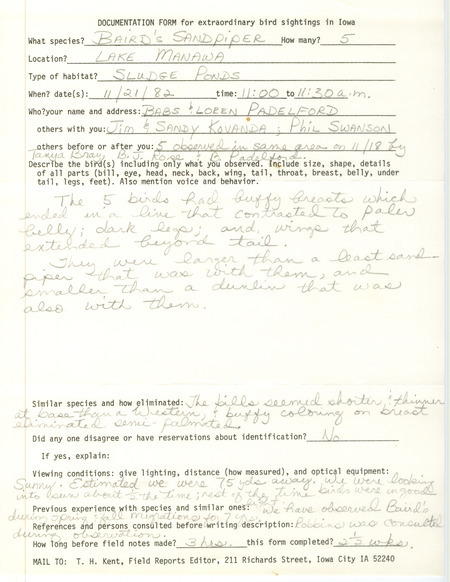 DOCUMENTATION FORM for extraordinary bird sightings in Iowa
What species? BAIRD'S SANDPIPER How many? 5
Location? LAKE MANAWA
Type of habitat? SLUDGE PONDS
When? date(s): 11/21/82 time: 11:00 to 11:30 a.m.
Who?your name and address: BABS & LOREN PADELFORD
others with you: Jim & SANDY KOVANDA; PHIL SWANSON
others before or after you: 5 observed in same area on 11/18 by
Tanya Bray, B.J. Rose & B. Padelford.
Describe the bird(s) including only what you observed. Include size, shape, details
of all parts (bill, eye, head, neck, back, wing, tail, throat, breast, belly, under
tail, legs, feet). Also mention voice and behavior.
The 5 birds had buffy breasts which
ended in a line that contrasted to paler
belly; dark legs; and, wings that
extended beyond tail.
They were larger than a least sand-
piper that was with them, and
smaller than a dunlin that was
also with them.
Similar species and how eliminated: The bills seemed shorter & thinner
at base than a Western, & buffy coloring on breast
eliminated semi-palmated.
Did any one disagree or have reservations about identification? No
If yes, explain:
Viewing conditions: give lighting, distance (how measured), and optical equipment:
Sunny. Estimated we were 75 yds away. We were looking
into sun about ½ the time; rest of the time birds were in good
Previous experience with species and similar ones: We have observed Baird's
during spring & fall migrations for 7 yrs.
References and persons consulted before writing description: Robbins was consulted
during observation.
How long before field notes made? 3 hrs. this form completed? 2½ wks.
MAIL TO: T. H. Kent, Field Reports Editor, 211 Richards Street, Iowa City IA 52240